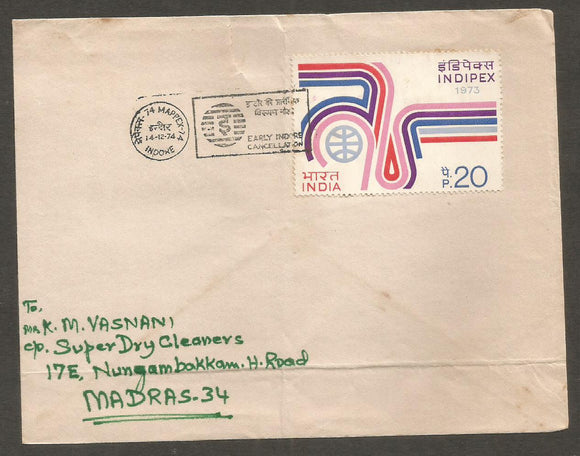 इंडिपेक्स
INDIPEX
1973
74 MAPPEX-74
इन्दौर
14-12-74
INDORE
EARLY INDORE
CANCELLATION
भारत
INDIA
पै.
P. 20
To,
MR K. M. VASNANI
c/o. Super Dry Cleaners
17E, Nungambakkam. H. Road
MADRAS-34